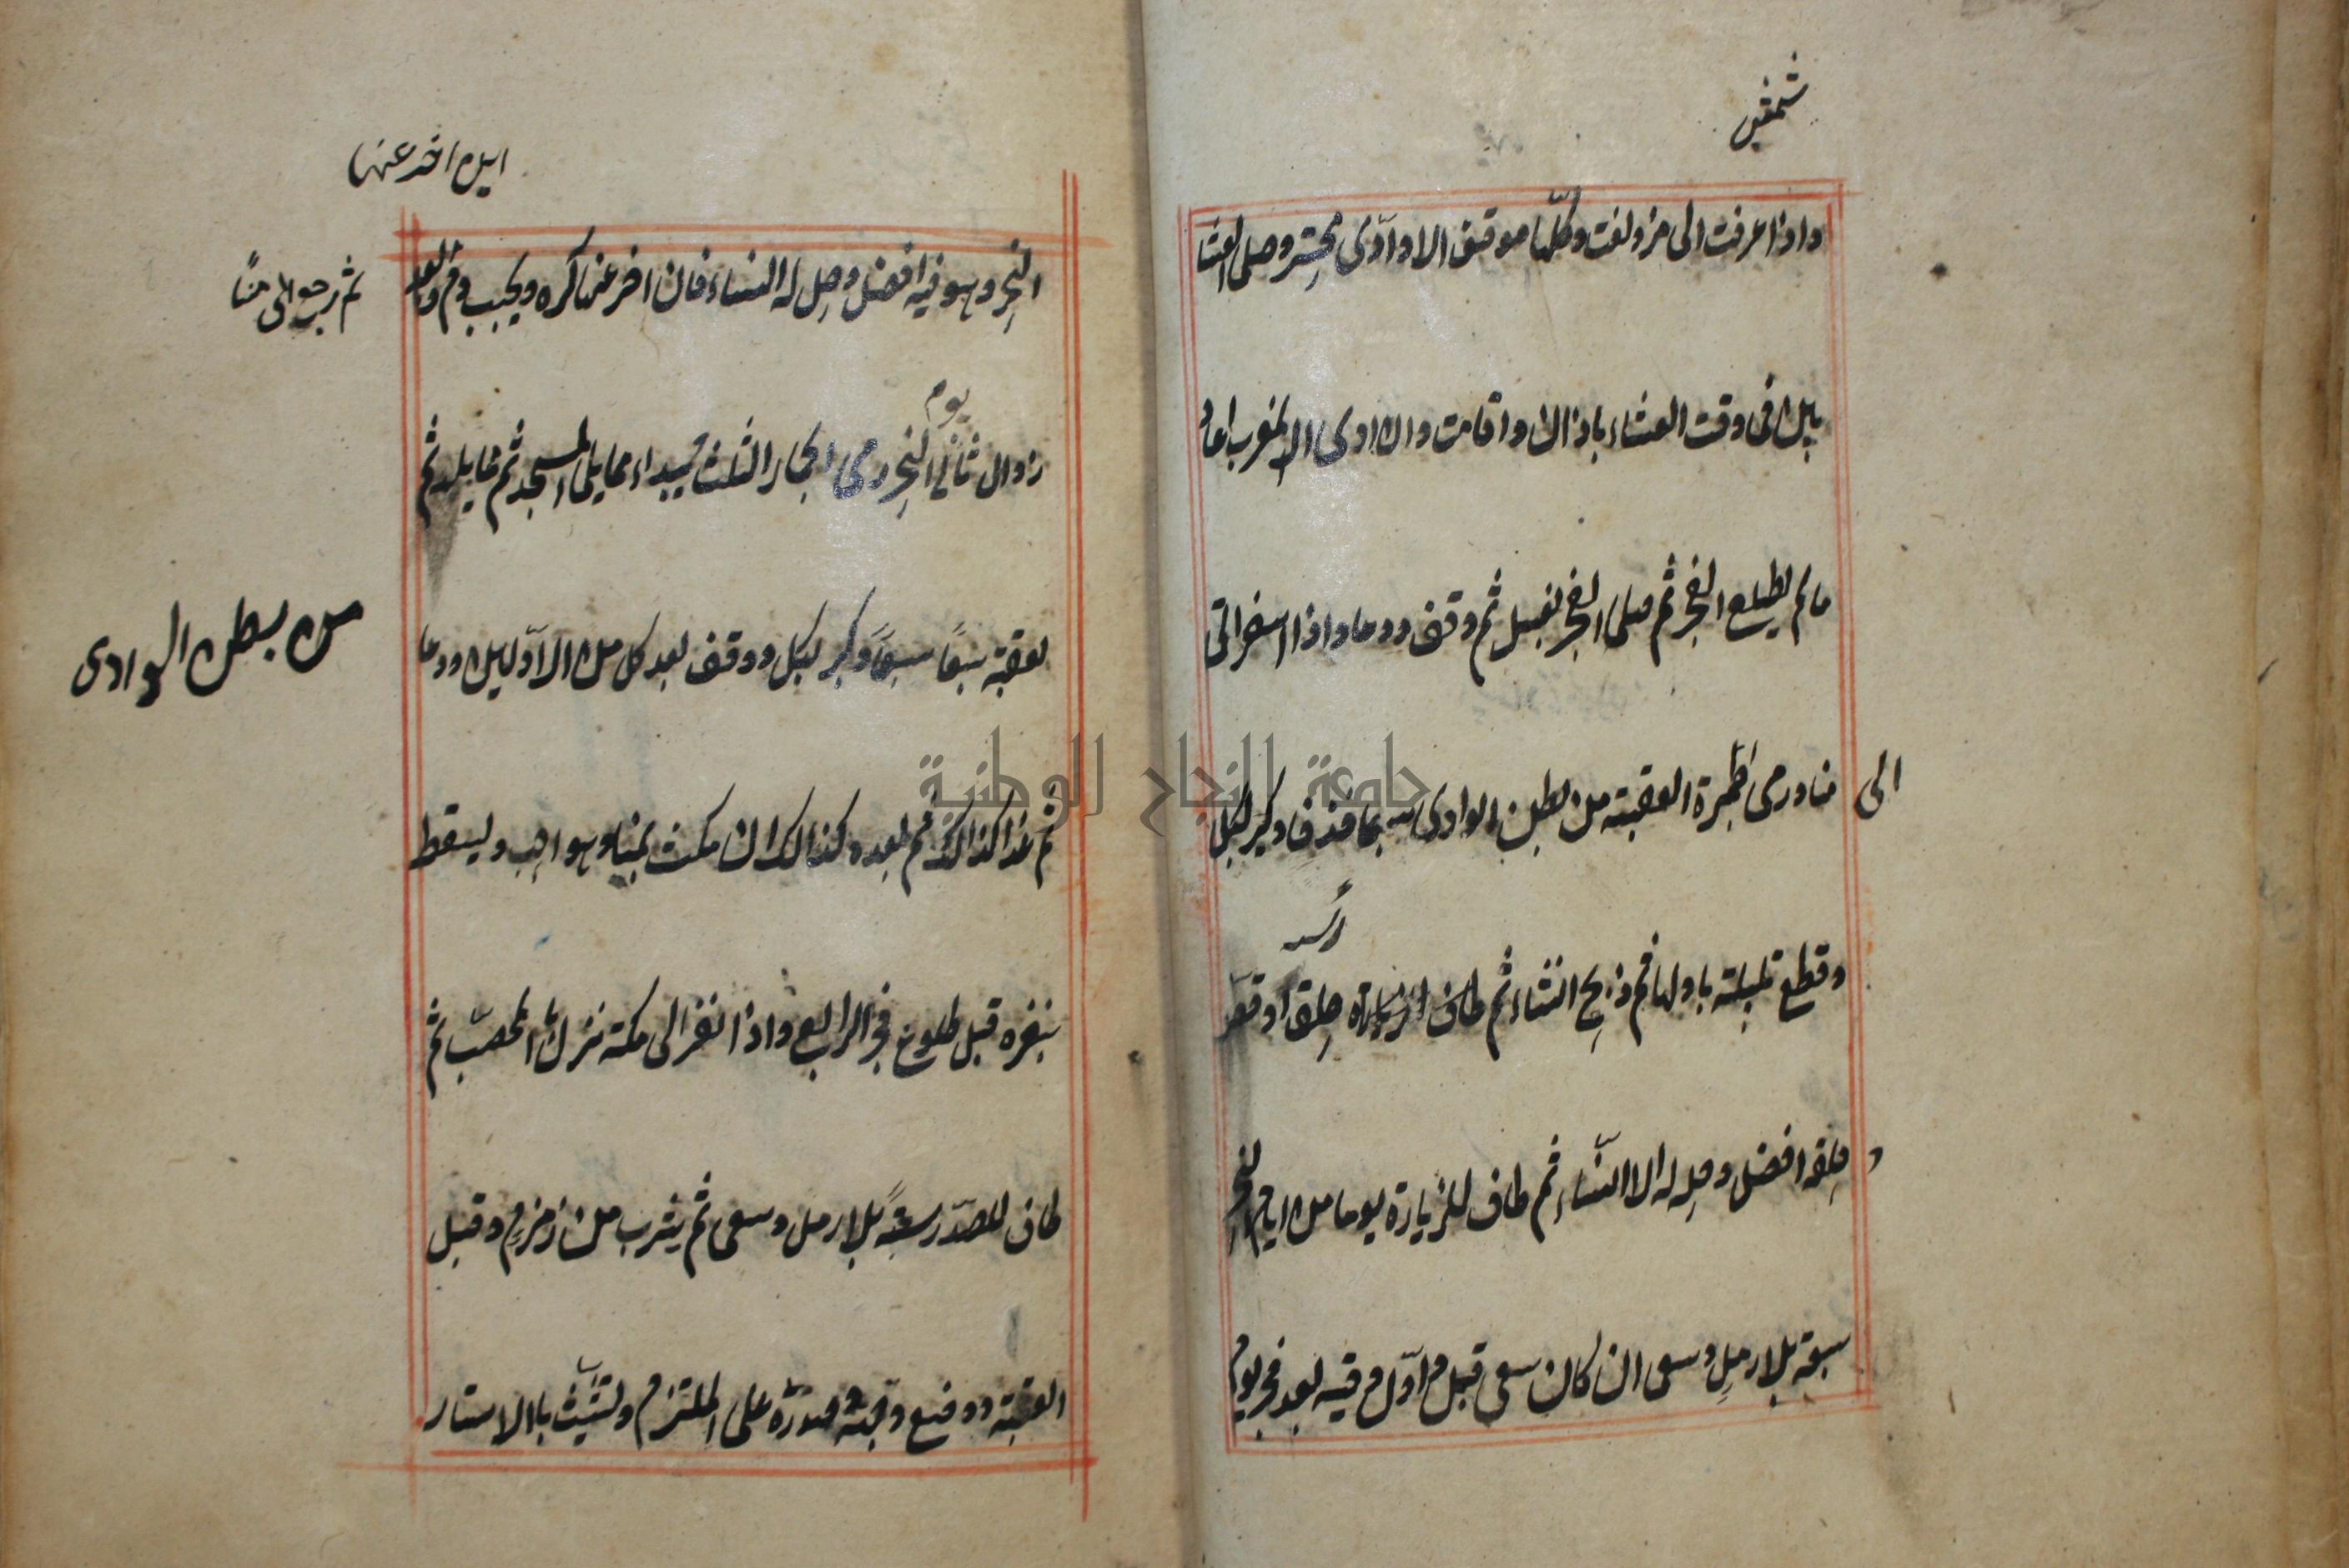 شمغیں
واذا غرفت الی مزولفت وكلّها موقف الا وادّی محسّر وصلی العشا
بین فی وقت العشاء باذان واقامت وان ادی المغرب اعاد
مالم یطلع الفجر ثم صلی الفجر بغسل ثم وقف ودعا واذا اسفر اتی
الی
منا ورمی الجمرة العقبة من بطن الوادی سبعا قذفا وكبر لكل
وقطع تلبیته باولها ثم ذبح انشاء ثم حلق او قصّر
و
حلقه افضل وحل له الا النّساء ثم طاف للزیارة یوما من ایام النحر
سبعة بلا رمل وسعی ان كان سعی قبل واوّل وقته بعد فجر یوم
ایدم اخر عنها
النحر وهو فیه افضل وحل له النساء فان اخر عنها كره ویجب دم وبعد
ثم رجع الی منًا
یوم
زوال ثانی النحر رمی الجمار الثلث یبداء مما یلی المسجد ثم مما یلیه ثم
بعقبة سبعًا سبعًا وكبر لكل ووقف بعد كل من الاوّلین ودعا
من بطن الوادی
ثم غدا كذالك ثم بعده كذالك ان مكث بمنا وهو احب ویسقط
بنفره قبل طلوع فجر الرابع واذا نفر الی مكة نزل المحصّب ثم
طاف للصّدر سبعةً بلا رمل وسعی ثم یشرب من زمزم وقبل
العقبة ووضع وجهه وصدره علی الملتزم وتشبّث بالاستار
جامعة النجاح الوطنية